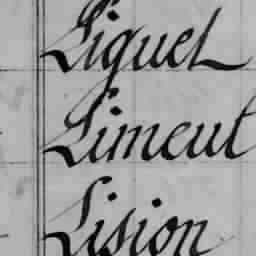 Liquet
Limeul
Lision